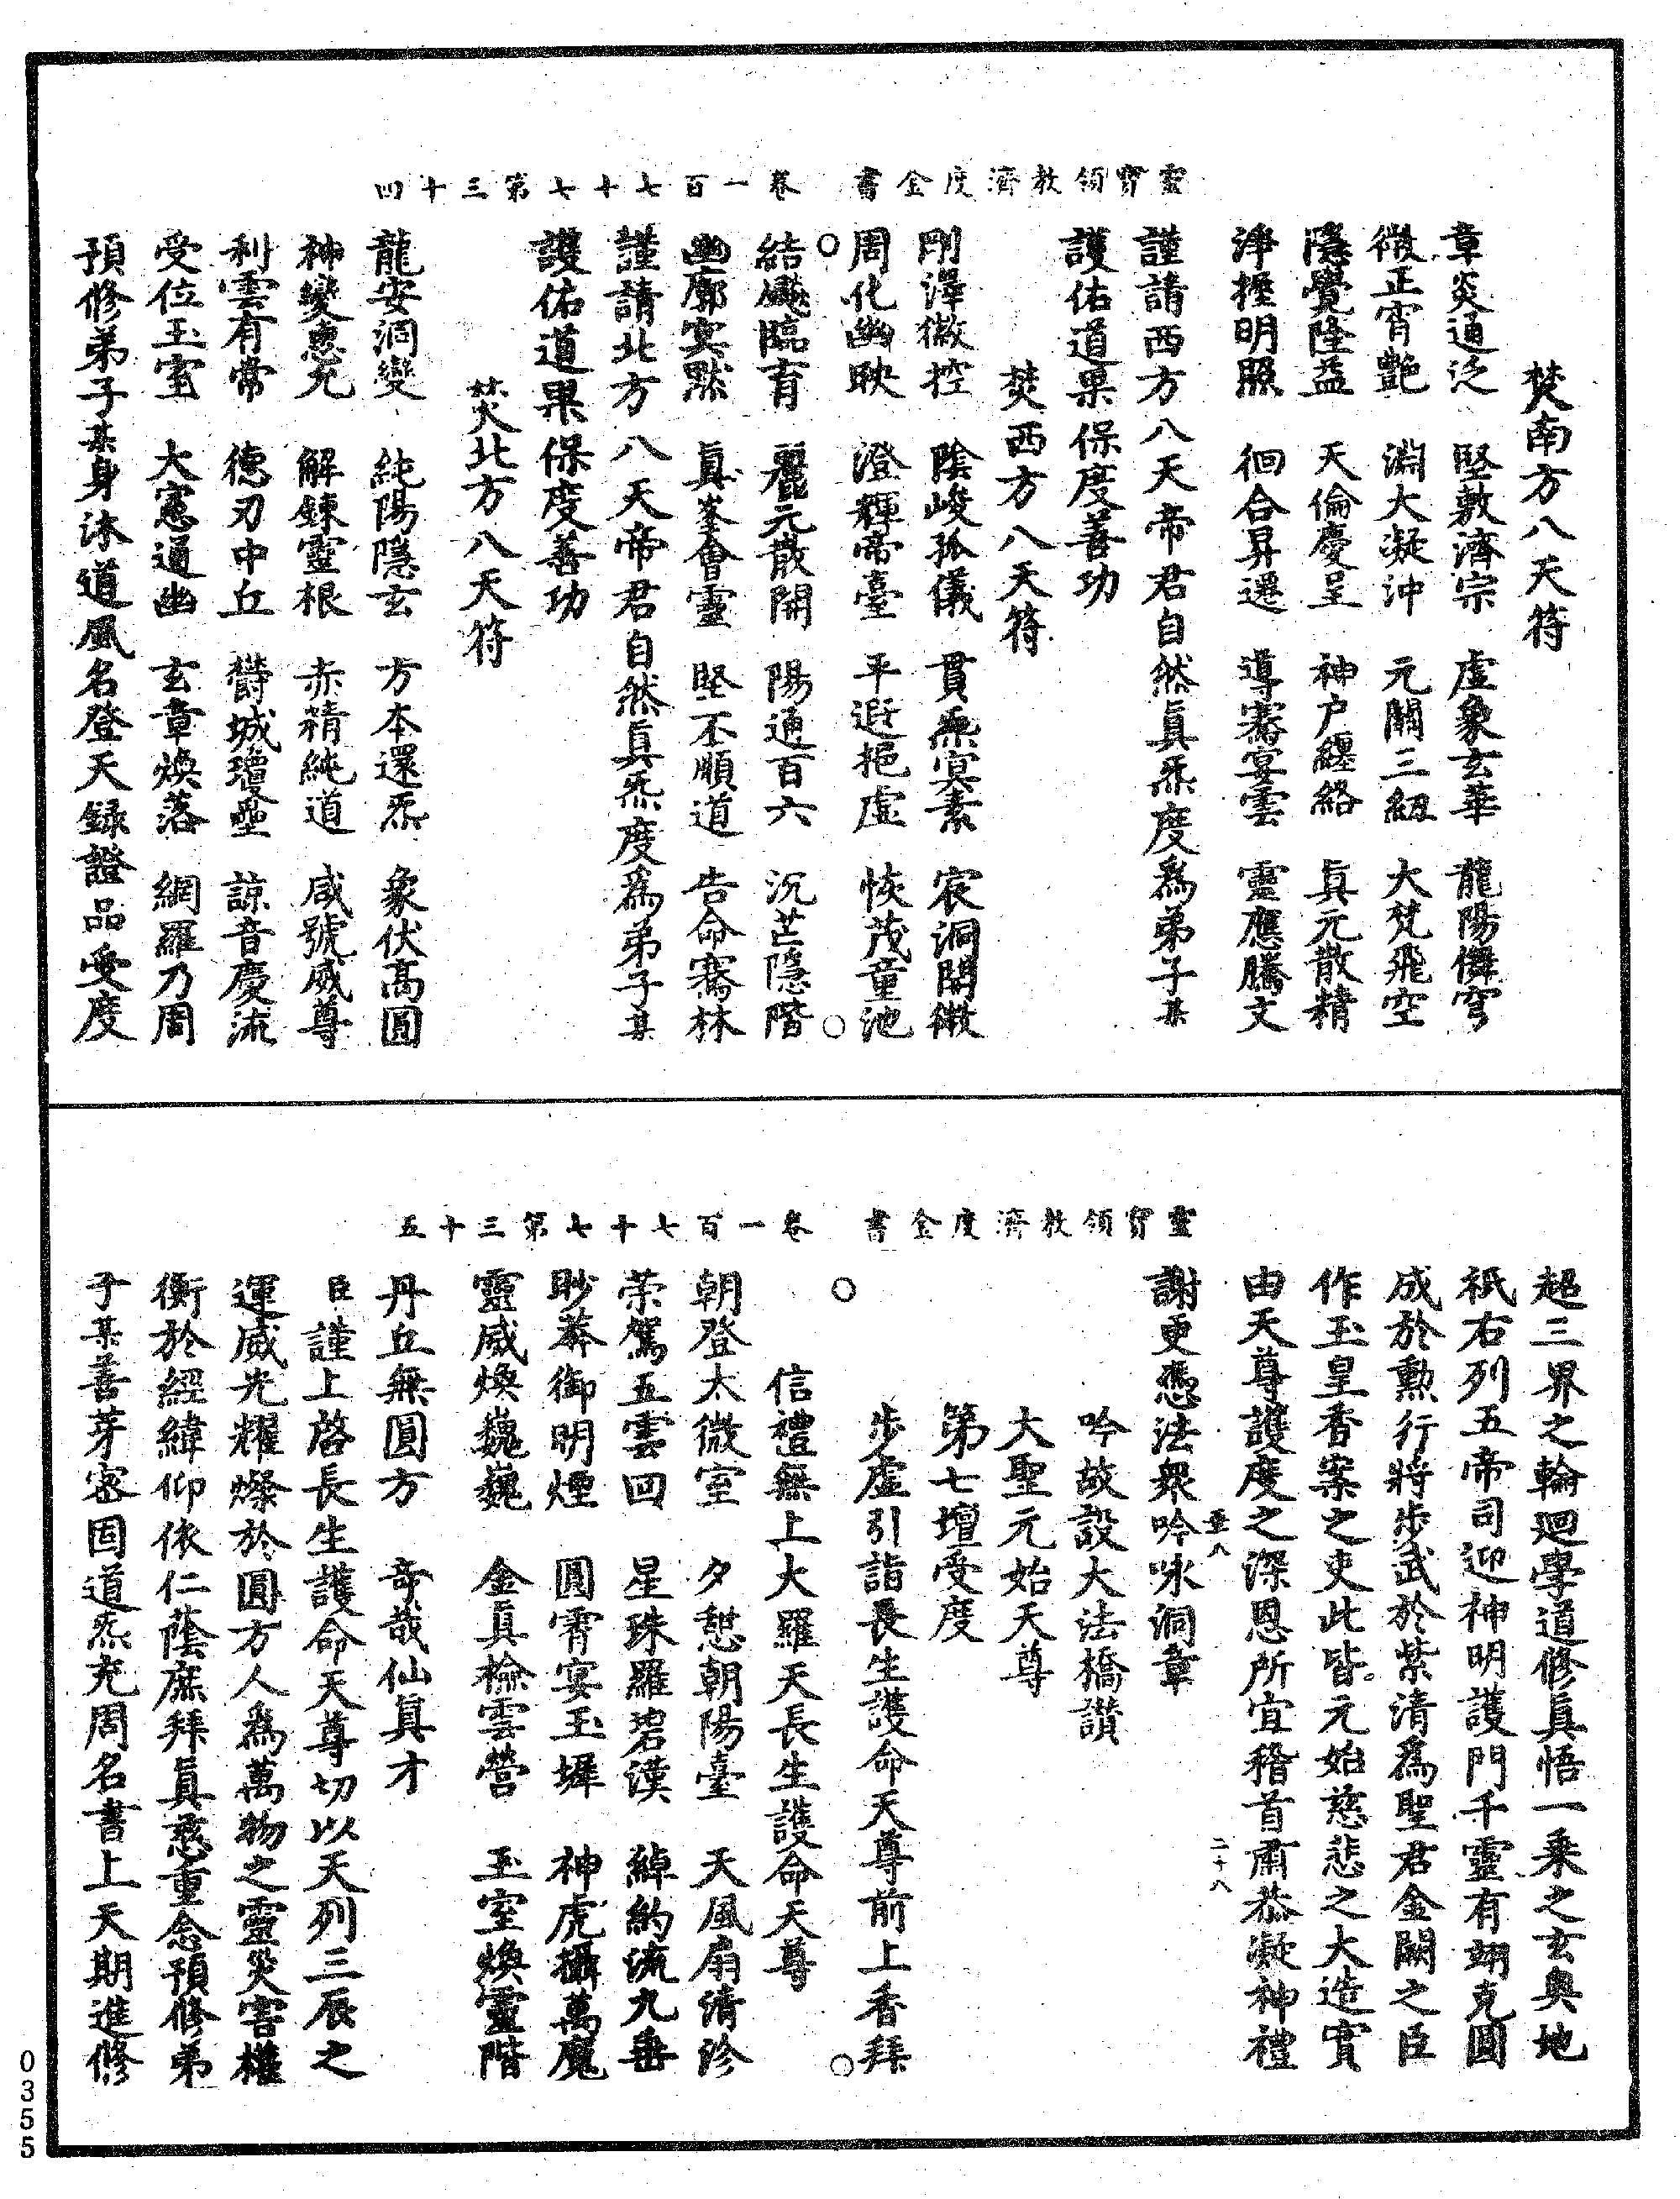 靈寶領教濟度金書　卷一百七十七第三十四
焚南方八天符
章炎通泛　堅敷濟宗　虛象玄華　龍陽憐穹
微正宵艷　淵大凝沖　元關三紐　大梵飛空
隱覺隆益　天倫慶呈　神戶纏絡　真元散精
淨握明照　徊合昇遷　導騫宴雲　靈應騰文
謹請西方八天帝君自然真炁度爲弟子某
護佑道果保度善功
焚西方八天符
剛澤徽控　陰峻孤儀　貫炁冥素　宸洞開微
周化幽映　澄輝帝臺　平遐挹虛　恢茂童池
結飈臨育　麗元散開　陽通百六　沉芒隱階
幽廓冥默　真峯會靈　堅丕順道　告命騫林
謹請北方八天帝君自然真炁度爲弟子某
護佑道果保度善功
焚北方八天符
龍安洞變　純陽隱玄　方本還炁　象伏高圓
神變惠元　解鍊靈根　赤精純道　咸號威尊
利雲有常　德刃中丘　欝城瓊壘　諒音慶流
受位玉室　大憲通幽　玄章煥落　網羅乃周
預修弟子某身沐道風名登天録證品受度
靈寶領教濟度金書　卷一百七十七第三十五
超三界之輪迴學道修真悟一乘之玄奧地
祇右列五帝司迎神明護門千靈有翊克圓
成於勲行將步武於紫清爲聖君金闕之臣
作玉皇香案之吏此皆元始慈悲之大造實
由天尊護度之深恩所宜稽首肅恭凝神禮
二十八
謝更憑法衆吟咏洞章
吟故設大法橋讃
大聖元始天尊
第七壇受度
步虛引詣長生護命天尊前上香拜
信禮無上大羅天長生護命天尊
朝登太微室　夕憇朝陽臺　天風扇清沴
荣駕五雲回　星珠羅碧漢　綽約流九垂
眇莽御明煙　圓霄宴玉墀　神虎攝萬魔
靈威煥巍巍　金真檢雲營　玉室煥靈階
丹丘無圓方　奇哉仙真才
臣謹上啓長生護命天尊切以天列三辰之
運威光耀燦於圓方人爲萬物之靈災害權
衡於經緯仰依仁蔭庶拜真慈重念預修弟
子某善芽密固道炁充周名書上天期進修
0355